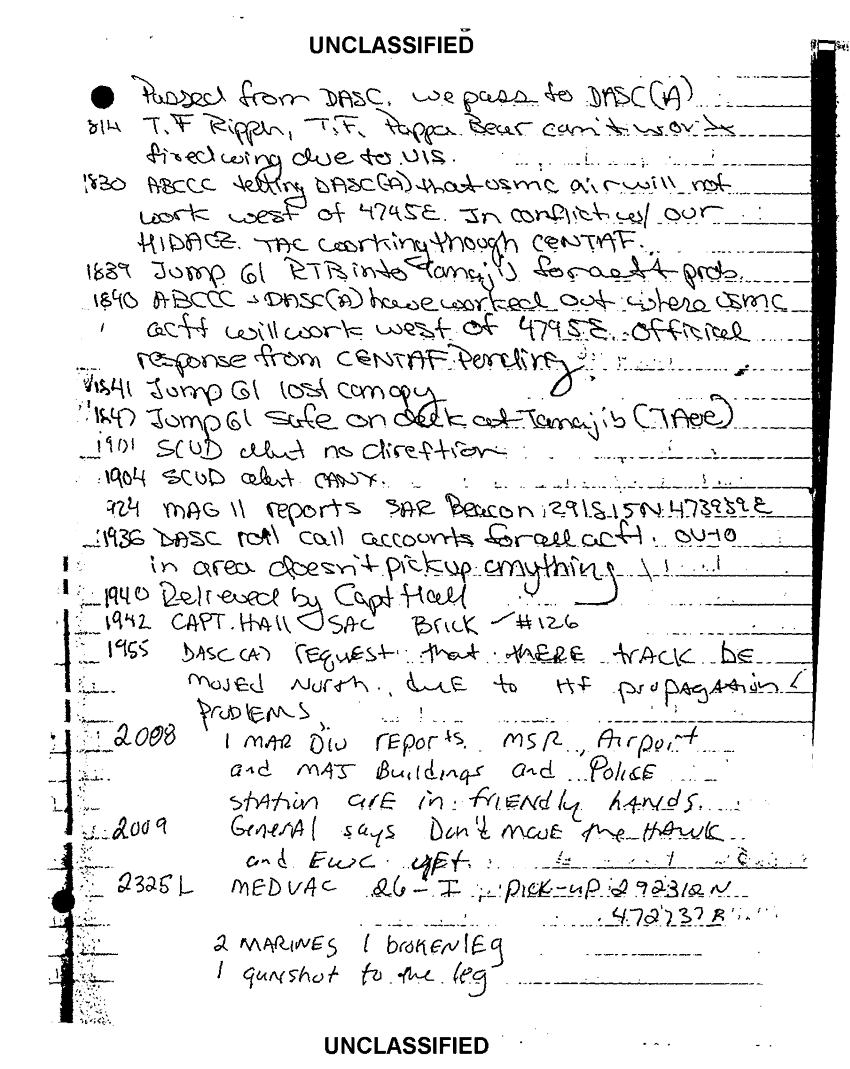 UNCLASSIFIED
Passed from DASC. we pass to DASC(A)
814 T.F Ripper, T.F. Pappa Bear can't work
fixed wing due to VIS.
1830 ABCCC telling DASC(A) that usmc air will not
work west of 4745E. In conflict w/ our
HIDACZ. TAC working though CENTAF.
1839 Jump 61 RTB into Tanajib for acft prob.
1840 ABCCC → DASC(A) have worked out where usmc
acft will work west of 4745E. Official
response from CENTAF Pending
1841 Jump 61 lost canopy
1847 Jump 61 safe on deck at Tanajib (TAOC)
1901 SCUD alert no direftion
1904 SCUD alert CANX.
924 MAG 11 reports SAR Beacon 291815N 473939E
1936 DASC roll call accounts for all acft. OV-10
in area doesn't pick up anything
1940 Relieved by Capt Hall
1942 CAPT. HALL SAC Brick #126
1955 DASC(A) request that thERE track be
moved North, due to HF propagation
Problems
2008 1 MAR Div reports MSR, Airport
and MAJ Buildings and Police
station are in friendly hands.
2009 General says Don't move the HAWK
and EWC yet.
2325L MEDVAC 26-I, pick-up 292312N
472737E
2 MARINES 1 broken leg
1 gunshot to the leg
UNCLASSIFIED